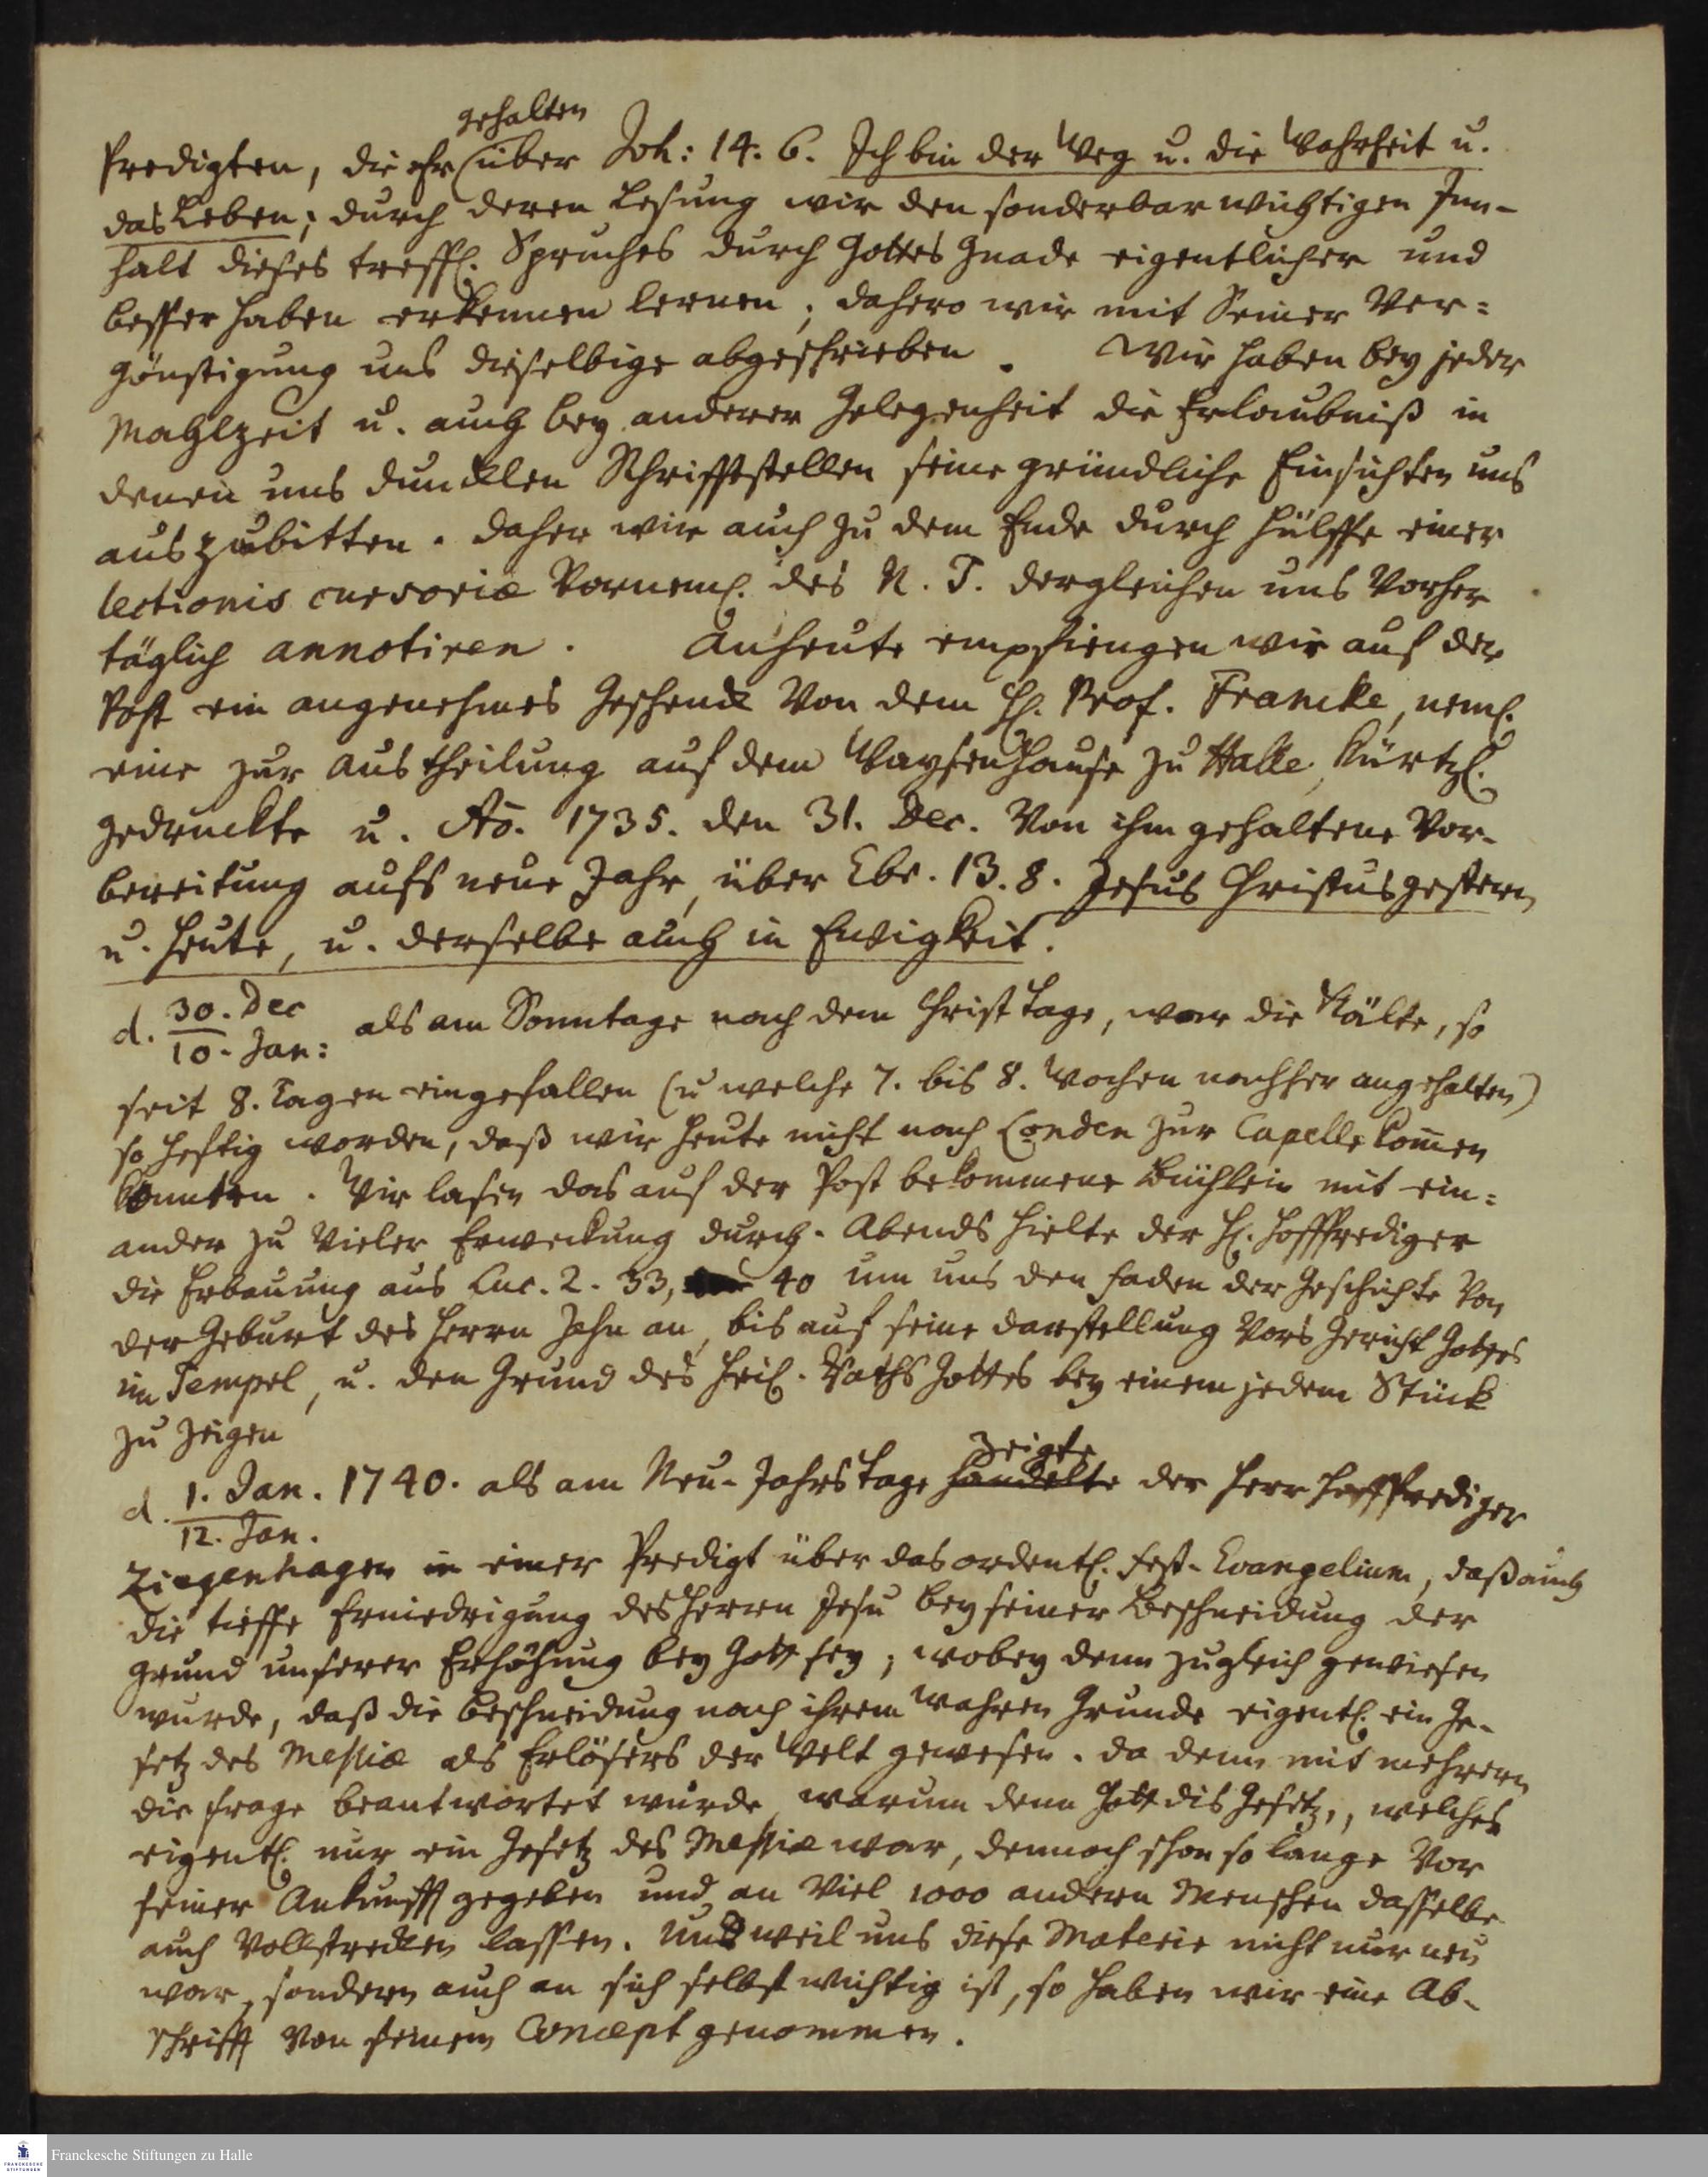 gehalten
Predigten, die er über Joh: 14. 6. Ich bin der Weg u. die Wahrheit u.
das Leben; durch deren Lesung wir den sonderbar wichtigen Inn-
halt dieses treffl. Spruches durch Gottes Gnade eigentlicher und
besser haben erkennen lernen; dahero wir mit Seiner Ver=
günstigung uns dieselbige abgeschrieben. Wir haben bey jeder
Mahlzeit u. auch bey anderer Gelegenheit die Erlaubniß in
denen uns duncklen Schrifftstellen seine gründliche Einsichten uns
auszubitten. Daher wir auch zu dem Ende durch Hülffe einer
lectionis cursoriæ Vorneml. des N. T. dergleichen uns Vorher
täglich annotiren. Anheute empfiengen wir auf der
Post ein angenehmes Geschenck Von dem H. Prof. Francke, neml.
eine zur Austheilung auf dem Waysenhause zu Halle, kürtzl.
gedruckte u. Ao. 1735. den 31. Dec. Von ihm gehaltene Vor-
bereitung aufs neue Jahr, über Ebr. 13. 8. Jesus Christus gestern
u. heute, u. derselbe auch in Ewigkeit.
d. 30. Dec / 10. Jan: als am Sonntage nach dem Christ Tage, war die Kälte, so
seit 8. Tagen eingefallen (u welche 7. bis 8. Wochen nachher angehalten)
so heftig worden, daß wir heute nicht nach London zur Capelle kom̄en
konnten. Wir lasen das auf der Post bekommene Büchlein mit ein=
ander zu Vieler Erweckung durch. Abends hielte der H. Hoffprediger
die Erbauung aus Luc. 2. 33, 40 um uns den Faden der Geschichte Von
der Geburt des Herrn Jesu an, bis auf seine Darstellung Vors Gericht Gottes
im Tempel, u. den Grund des Heil. Raths Gottes bey einem jedem Stück
zu zeigen
zeigte
d. 1. Jan. 1740. / 12. Jan. als am Neu-Jahrs Tage handelte der Herr Hoffprediger
Ziegenhagen in einer Predigt über das ordentl. Fest-Evangelium, daß auch
die tieffe Erniedrigung des Herren Jesu bey seiner Beschneidung der
Grund unserer Erhöhung bey Gott sey; wobey denn zugleich gewiesen
wurde, daß die Beschneidung nach ihrem wahren Grunde eigentl. ein Ge-
setz des Messiæ als Erlösers der Welt gewesen. Da denn mit mehrern
die Frage beantwortet wurde, warum denn Gott dis Gesetz, welches
eigentl. nur ein Gesetz des Messiæ war, dennoch schon so lange Vor
seiner Ankunfft gegeben und an Viel 1000 andern Menschen dasselbe
auch Vollstrecken lassen. Und weil uns diese Materie nicht nur neu
war, sondern auch an sich selbst wichtig ist, so haben wir eine Ab-
schrifft Von seinem Concept genommen.
Franckesche Stiftungen zu Halle
FRANCKESCHE
STIFTUNGEN